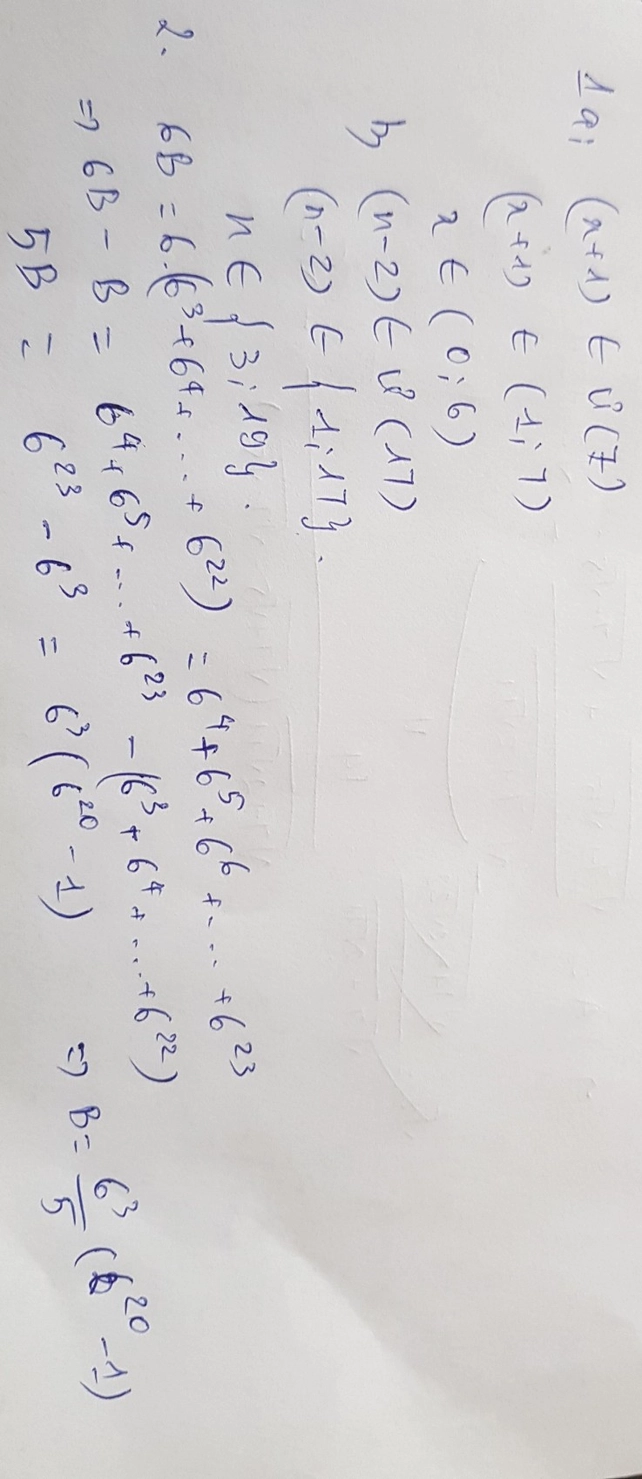 1a, (x+1) ∈ Ư(7)
(x+1) ∈ (1;7)
x ∈ (0;6)
b, (n-2) ∈ Ư(17)
(n-2) ∈ {1;17}.
n ∈ {3;19}.
2. 6B = 6.(6³+6⁴+...+6²²) = 6⁴+6⁵+6⁶+...+6²³
⇒ 6B - B = 6⁴+6⁵+...+6²³ - (6³+6⁴+...+6²²)
5B = 6²³ - 6³ = 6³(6²⁰-1) ⇒ B = 6³/5 (6²⁰-1)